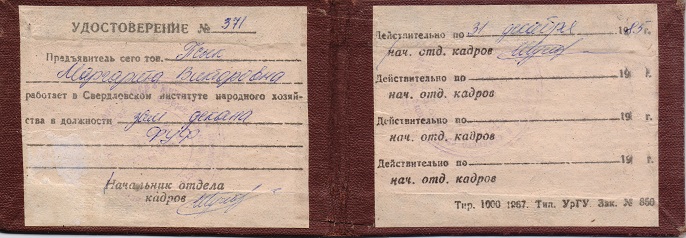 УДОСТОВЕРЕНИЕ № 371
Предъявитель сего тов.
Маргарита Викторовна
работает в Свердловском институте народного хозяй-
ства в должности зам декана
ФУФ
Начальник отдела
кадров
Действительно по 31 декабря 1985г.
нач. отд. кадров
Действительно по 19 г.
нач. отд. кадров
Действительно по 19 г.
нач. отд. кадров
Действительно по 19 г.
нач. отд. кадров
Тир. 1000 1267. Тип. УрГУ. Зак. № 850